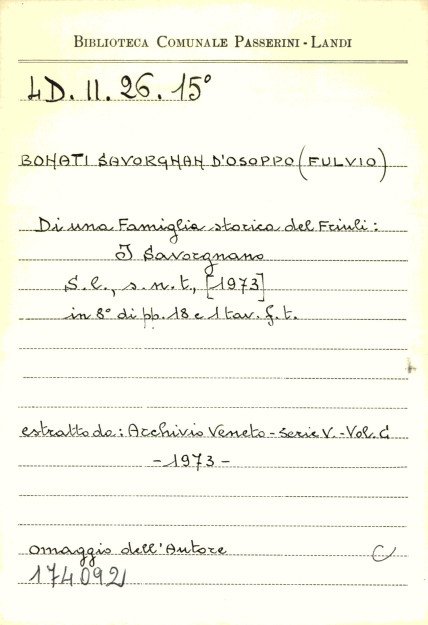 BIBLIOTECA COMUNALE PASSERINI - LANDI
LD. II. 26. 15°
BONATI SAVORGNAN D'OSOPPO (FULVIO)
Di una Famiglia storica del Friuli:
I Savorgnano
S.l., s.n.t., [1973]
in 8° di pp. 18 e 1 tav. f. t.
estratto da: Archivio Veneto - Serie V. - Vol. C
- 1973 -
omaggio dell'Autore C
174092